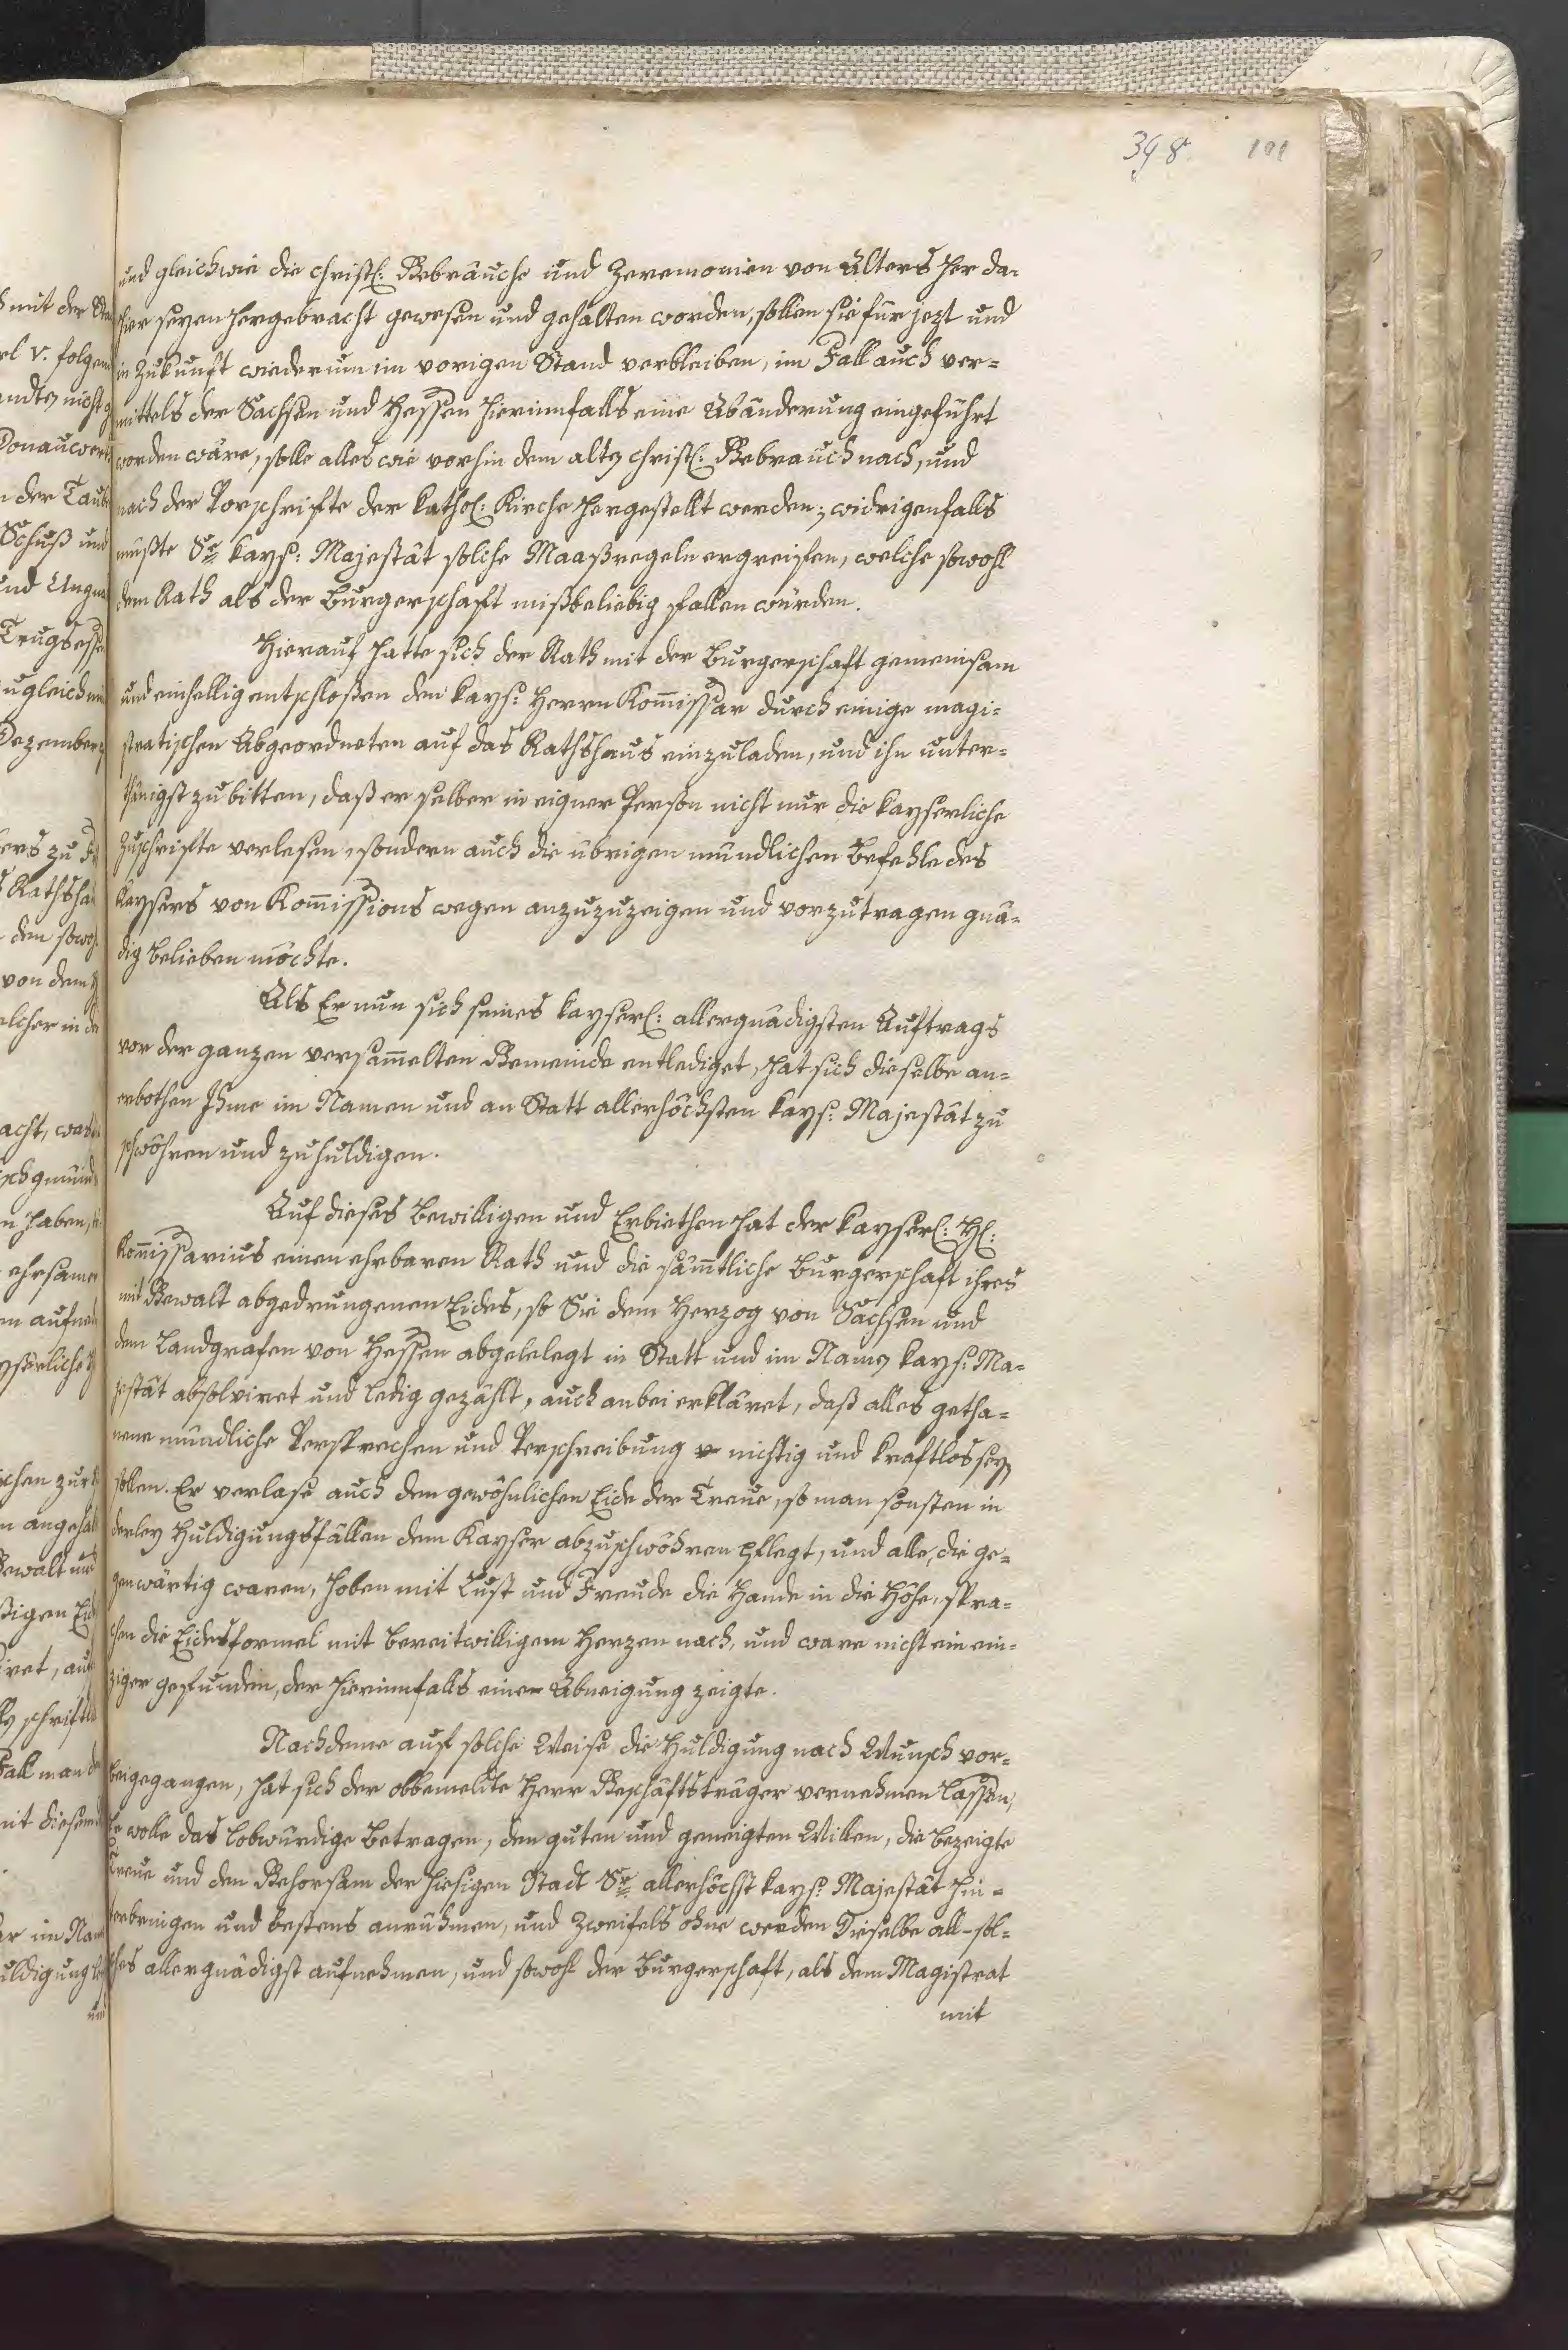 398. 101
und gleichwie die christl: Gebräuche und Zeremonien von Alters her da-
hier seyen hergebracht gewesen und gehalten worden, sollen sie für jezt und
in Zukunft wiederum im vorigen Stand verbleiben, im Fall auch ver-
mittels der Sachsen und Hessen hierinnfalls eine Abänderung eingeführt
worden wäre, solle alles wie vorhin dem alten christl: Gebrauch nach, und
nach der Vorschrifte der kathol: Kirche hergestellt werden; widrigenfalls
müßte Sr kays: Majestät solche Maaßregeln ergreifen, welche sowohl
dem Rath als der Burgerschaft mißbeliebig fallen würden.
Hierauf hatte sich der Rath mit der Burgerschaft gemeinsam
und einhellig entschloßen den kays: Herrn Kom̄issar durch einige magi-
stratischen Abgeordneten auf das Rathshaus einzuladen, und ihn unter-
thänigst zu bitten, daß er selber in eigner Person nicht nur die kayserliche
Zuschrifte verlesen, sondern auch die übrigen mündlichen Befehle des
Kaysers von Kom̄issions wegen anzuzuzeigen und vorzutragen gnä-
dig belieben möchte.
Als Er nun sich seines kayserl: allergnädigsten Auftrags
vor der ganzen versam̄elten Gemeinde entlediget, hat sich dieselbe an-
erbothen Ihme im Namen und an Statt allerhöchsten kays: Majestät zu
schwöhren und zu huldigen.
Auf dieses Bewilligen und Erbiethen hat der kayserl: Hl:
Kom̄issarius einen ehrbaren Rath und die säm̄tliche Burgerschaft ihres
mit Gewalt abgedrungenen Eides, so Sie dem Herzog von Sachsen und
dem Landgrafen von Hessen abgelelegt in Statt und im Namen kays: Ma-
jestät absolviret und ledig gezählt, auch anbei erkläret, daß alles getha-
nene mündliche Versprechen und Verschreibung nichtig und kraftlos seyn
sollen. Er verlase auch den gewöhnlichen Eide der Treue, so man sonsten in
derley Huldigungsfällen dem Kayser abzuschwöhren pflegt, und alle, die ge-
genwärtig waren, hoben mit Lust und Freude die Hande in die Höhe, spra-
chen die Eidesformel mit bereitwilligem Herzen nach, und ware nicht ein ein-
ziger gefunden, der hierinnfalls eine Abneigung zeigte.
Nachdeme auf solche Weise die Huldigung nach Wunsch vor-
beigegangen, hat sich der obbemeldte Herr Geschäftsträger vernehmen lassen,
Er wolle das lobwürdige Betragen, den guten und geneigten Willen, die bezeigte
Treue und den Gehorsam der hiesigen Stadt Sr allerhöchst kays: Majestät hin-
terbringen und bestens anrühmen, und Zweifels ohne werden Dieselbe all-sol-
ches allergnädigst aufnehmen, und sowohl der Burgerschaft, als dem Magistrat
mit